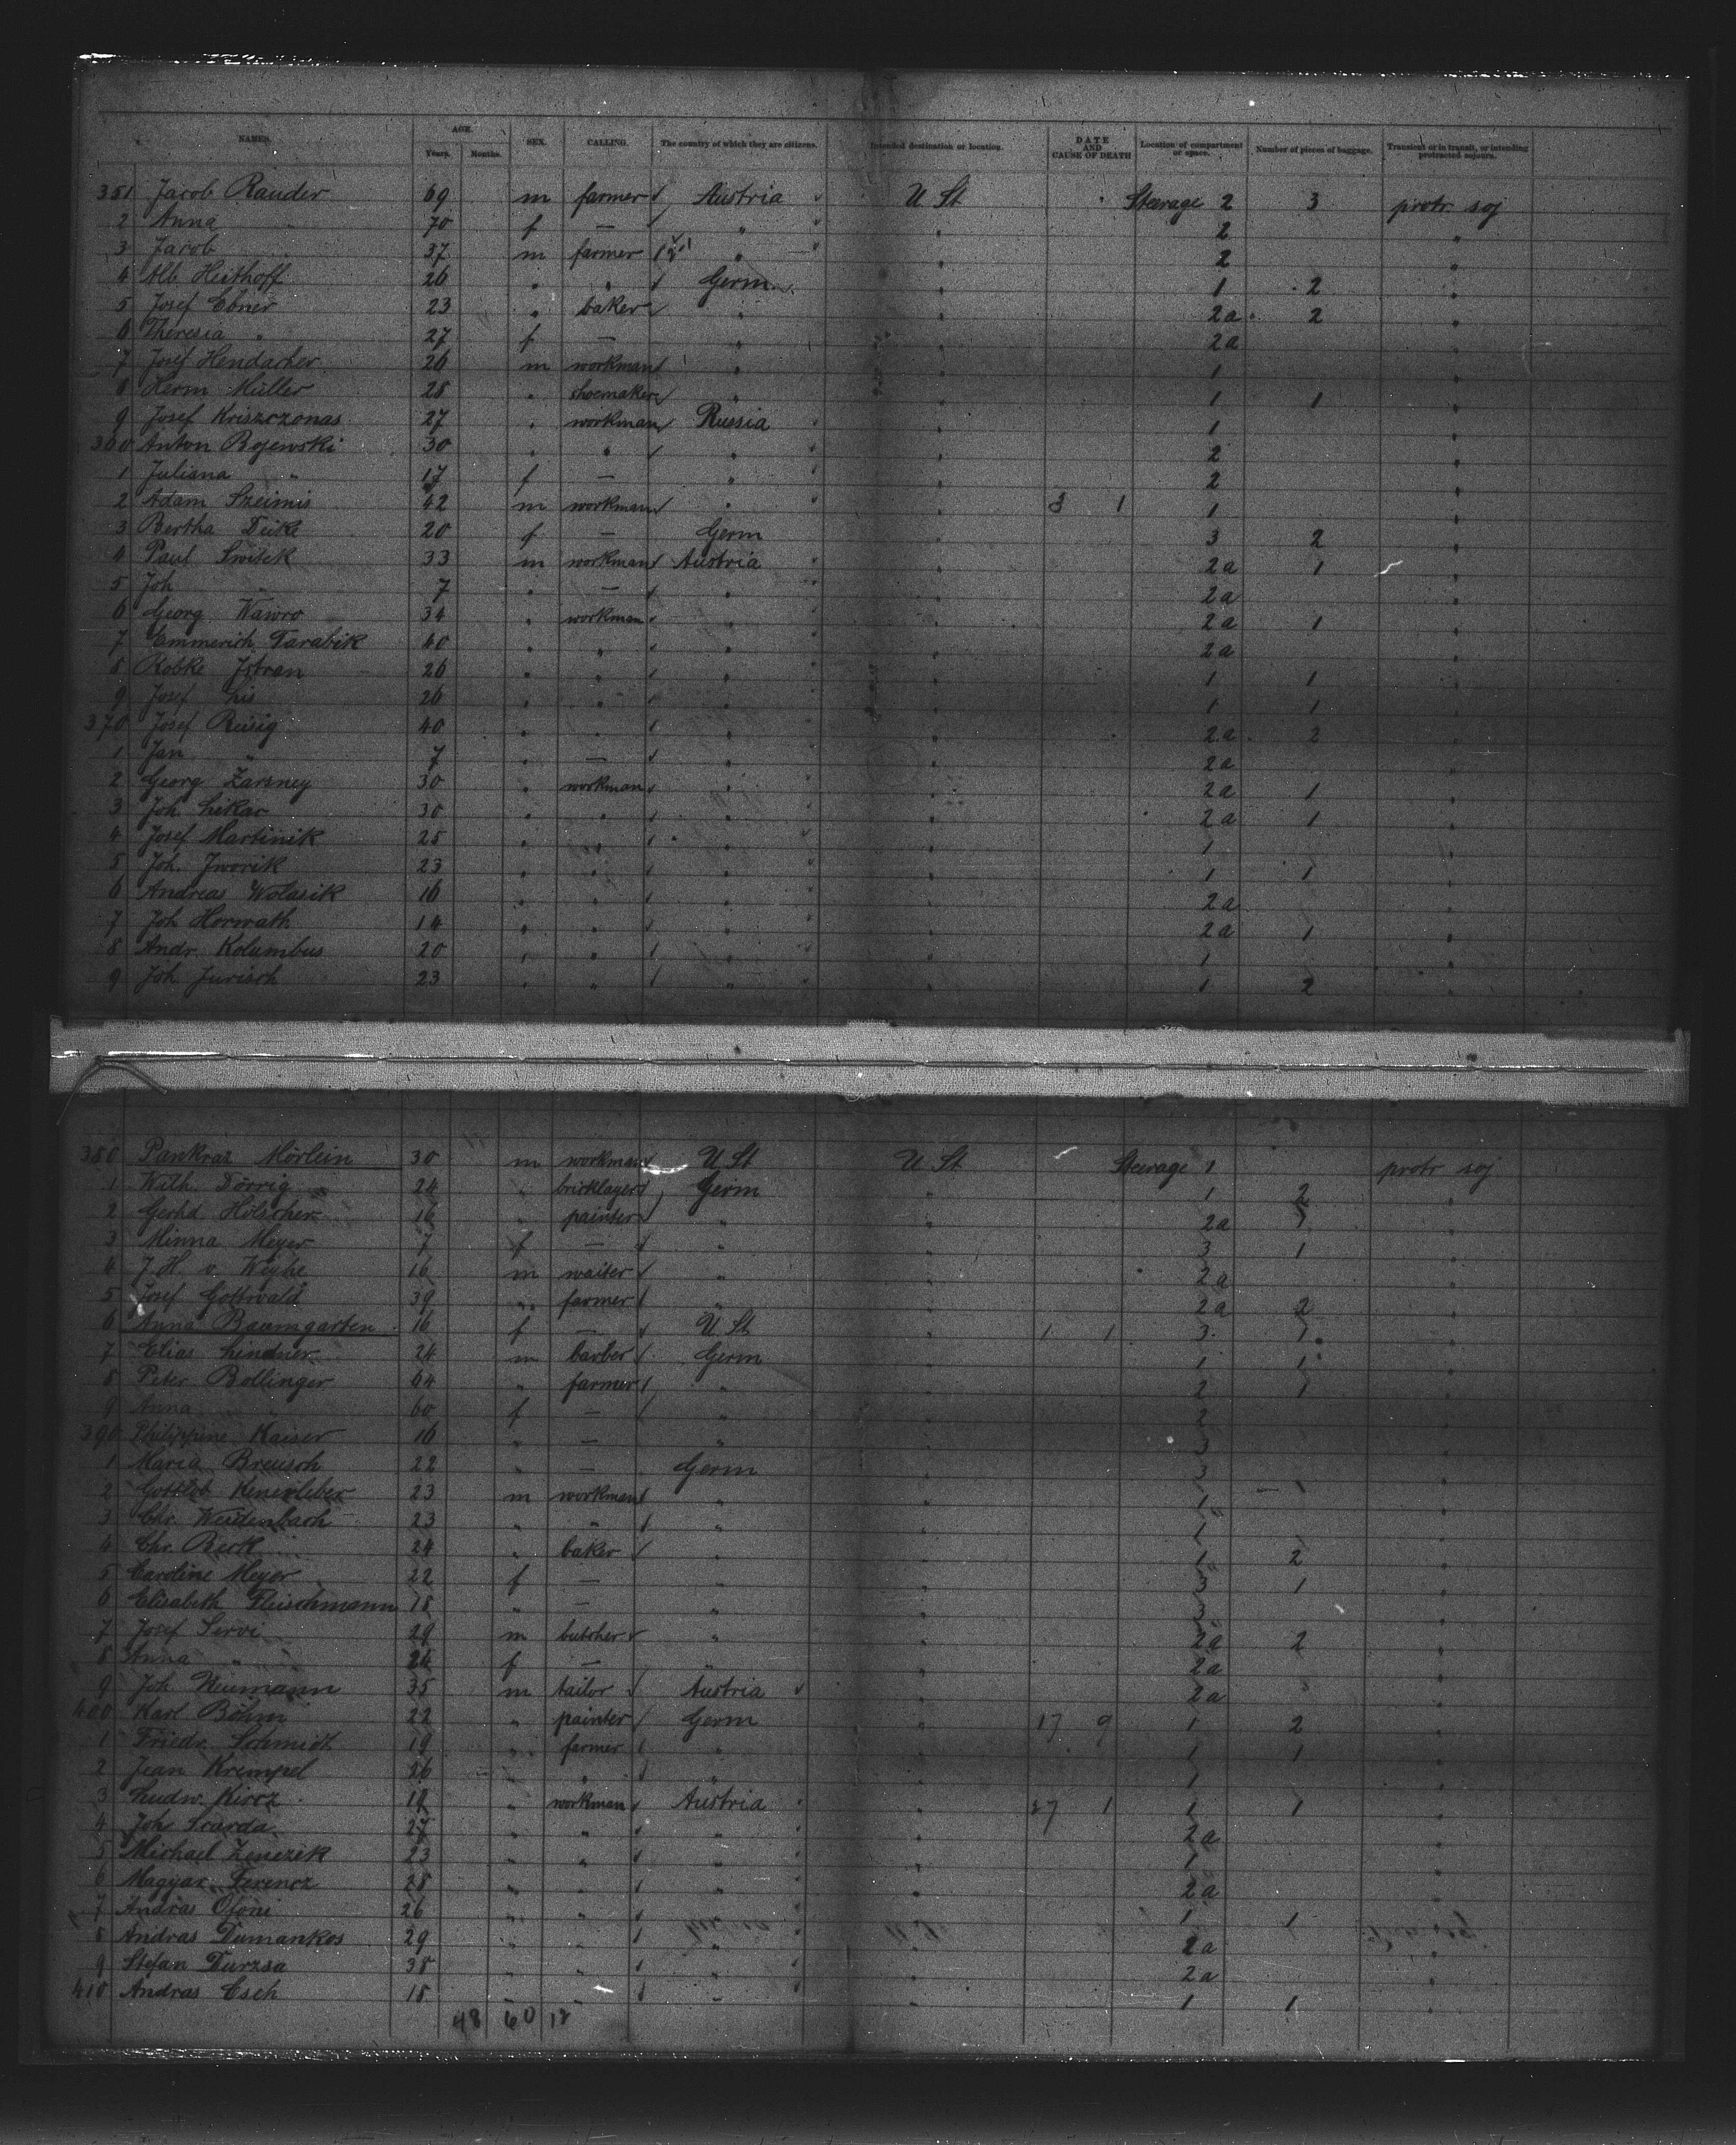 NAMES. AGE. Years. Months. SEX. CALLING. The country of which they are citizens. Intended destination or location. DATE AND CAUSE OF DEATH Location of compartment or space. Number of pieces of baggage. Transient or in transit, or intending protracted sojourn.
351 Jacob Rauder 69 m farmer Austria U St Steerage 2 3 protr. soj
2 Anna " 70 f — " " 2 "
3 Jacob " 37 m farmer " " 2 "
4 Alb. Heithoff 26 " " Germ. " 1 2 "
5 Josef Ebner 23 " baker " " 2a 2 "
6 Theresia " 27 f — " " 2a "
7 Josef Hendacher 26 m workman " " 1 "
8 Herm Müller 28 " shoemaker " " 1 1 "
9 Josef Kriszczonas 27 " workman Russia " 1 "
360 Anton Bojewski 30 " " " " 2 "
1 Juliana " 17 f — " " 2 "
2 Adam Szeimis 42 m workman " " 3 1 1 "
3 Bertha Deike 20 f — Germ " 3 2 "
4 Paul Switek 33 m workman Austria " 2a 1 "
5 Joh — 7 " — " " 2a "
6 Georg Wawro 34 " workman " " 2a 1 "
7 Emmerich Tarabik 40 " " " " 2a "
8 Robke Istvan 26 " " " " 1 1 "
9 Josef Lis 26 " " " " 1 1 "
370 Josef Reisig 40 " " " " 2a 2 "
1 Jan " 7 " — " " 2a "
2 Georg Zarsney 30 " workman " " 2a 1 "
3 Joh Likar 30 " " " " 2a 1 "
4 Josef Martinik 25 " " " " 1 "
5 Joh. Jworik 23 " " " " 1 1 "
6 Andreas Wolasik 16 " " " " 2a "
7 Joh Horwath 14 " " " " 2a 1 "
8 Andr. Kolumbus 20 " " " " 1 "
9 Joh Jurisch 23 " " " " 1 2 "
380 Pankraz Mörlein 30 m workman U St U St Steerage 1 protr soj
1 Wilh. Dörrig 24 " bricklayer Germ " 1 2 "
2 Gerhd. Hölscher 16 " painter " " 2a 1 "
3 Minna Meyer 7 f — " " 3 1 "
4 J. H. v. Weyhe 16 m waiter " " 2a "
5 Josef Gottwald 39 " farmer " " 2a 2 "
6 Anna Baumgarten 16 f — U St " 1 1 3 1 "
7 Elias Lindner 24 m barber Germ " 1 1 "
8 Peter Bollinger 64 " farmer " " 2 1 "
9 Anna " 60 f — " " 2 "
390 Philippine Kaiser 16 " — " " 3 "
1 Maria Breusch 22 " — Germ " 3 "
2 Gottlob 23 m workman " " 1 "
3 Chr. Weidenbach 23 " " " " 1 "
4 Chr. Berk 24 " baker " " 1 2 "
5 Caroline Meyer 22 f — " " 3 1 "
6 Elisabeth Fleischmann 18 " — " " 3 "
7 Josef Servi 29 m butcher " " 2a 2 "
8 Anna " 24 f — " " 2a "
9 Joh. Neumann 35 m tailor Austria " 2a "
400 Karl Böhm 22 " painter Germ " 17 9 1 2 "
1 Friedr. Schmidt 19 " farmer " " 1 1 "
2 Jean Krempel 26 " " " " 1 "
3 Ludw. Kircz 18 " workman Austria " 27 1 1 1 "
4 Joh Scurda 27 " " " " 2a "
5 Michael Zenezik 23 " " " " 1 "
6 Magyar Ferencz 28 " " " " 2a "
7 Andras 26 " " " " 1 1 "
8 Andras Dumankos 29 " " " " 2a "
9 Stefan Durzsa 38 " " " " 2a "
410 Andras Cseh 18 " " " " 1 1 "
48 60 12